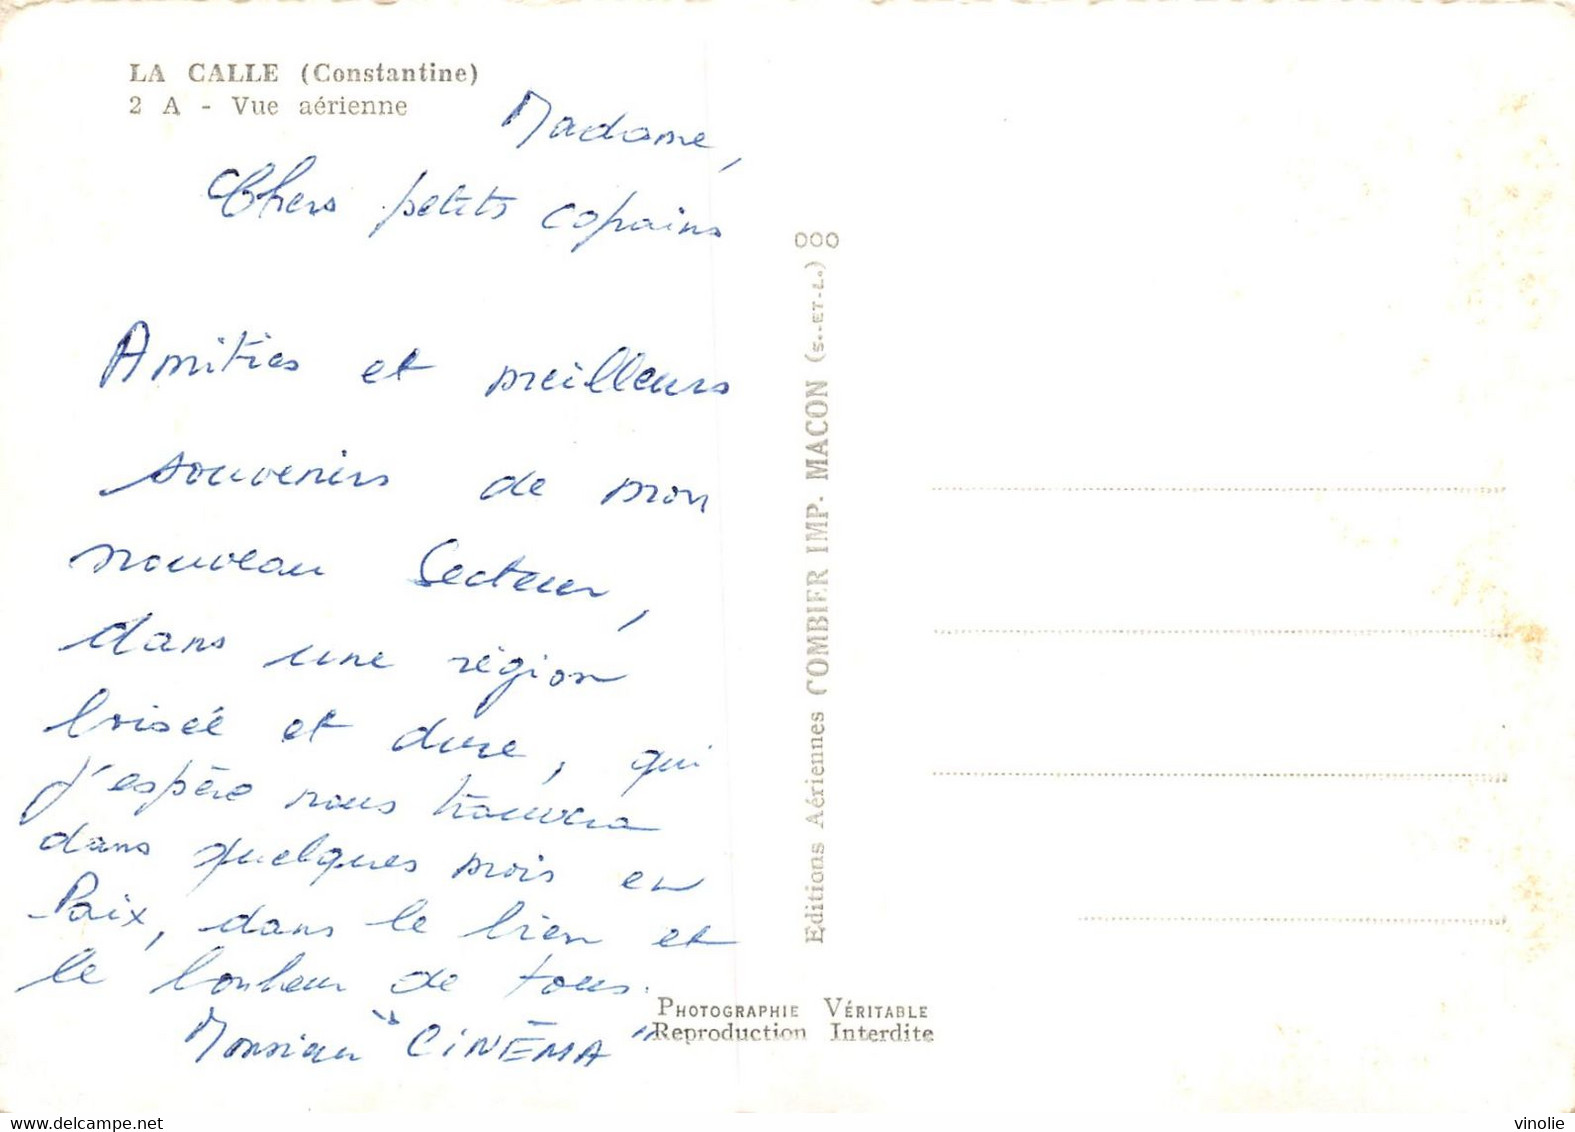 LA CALLE (Constantine)
2 A - Vue aérienne
Madame,
Chers petits copains
Amitiés et meilleurs
souvenirs de mon
nouveau Secteur,
dans une région
boisée et dure, qui
j'espère nous trouvera
dans quelques mois en
Paix, dans le bien et
le bonheur de tous.
Monsieur "CINÉMA"
000
Editions Aériennes COMBIER IMP. MACON (S.-ET-L.)
PHOTOGRAPHIE VÉRITABLE
Reproduction Interdite
www.delcampe.net
vinolie